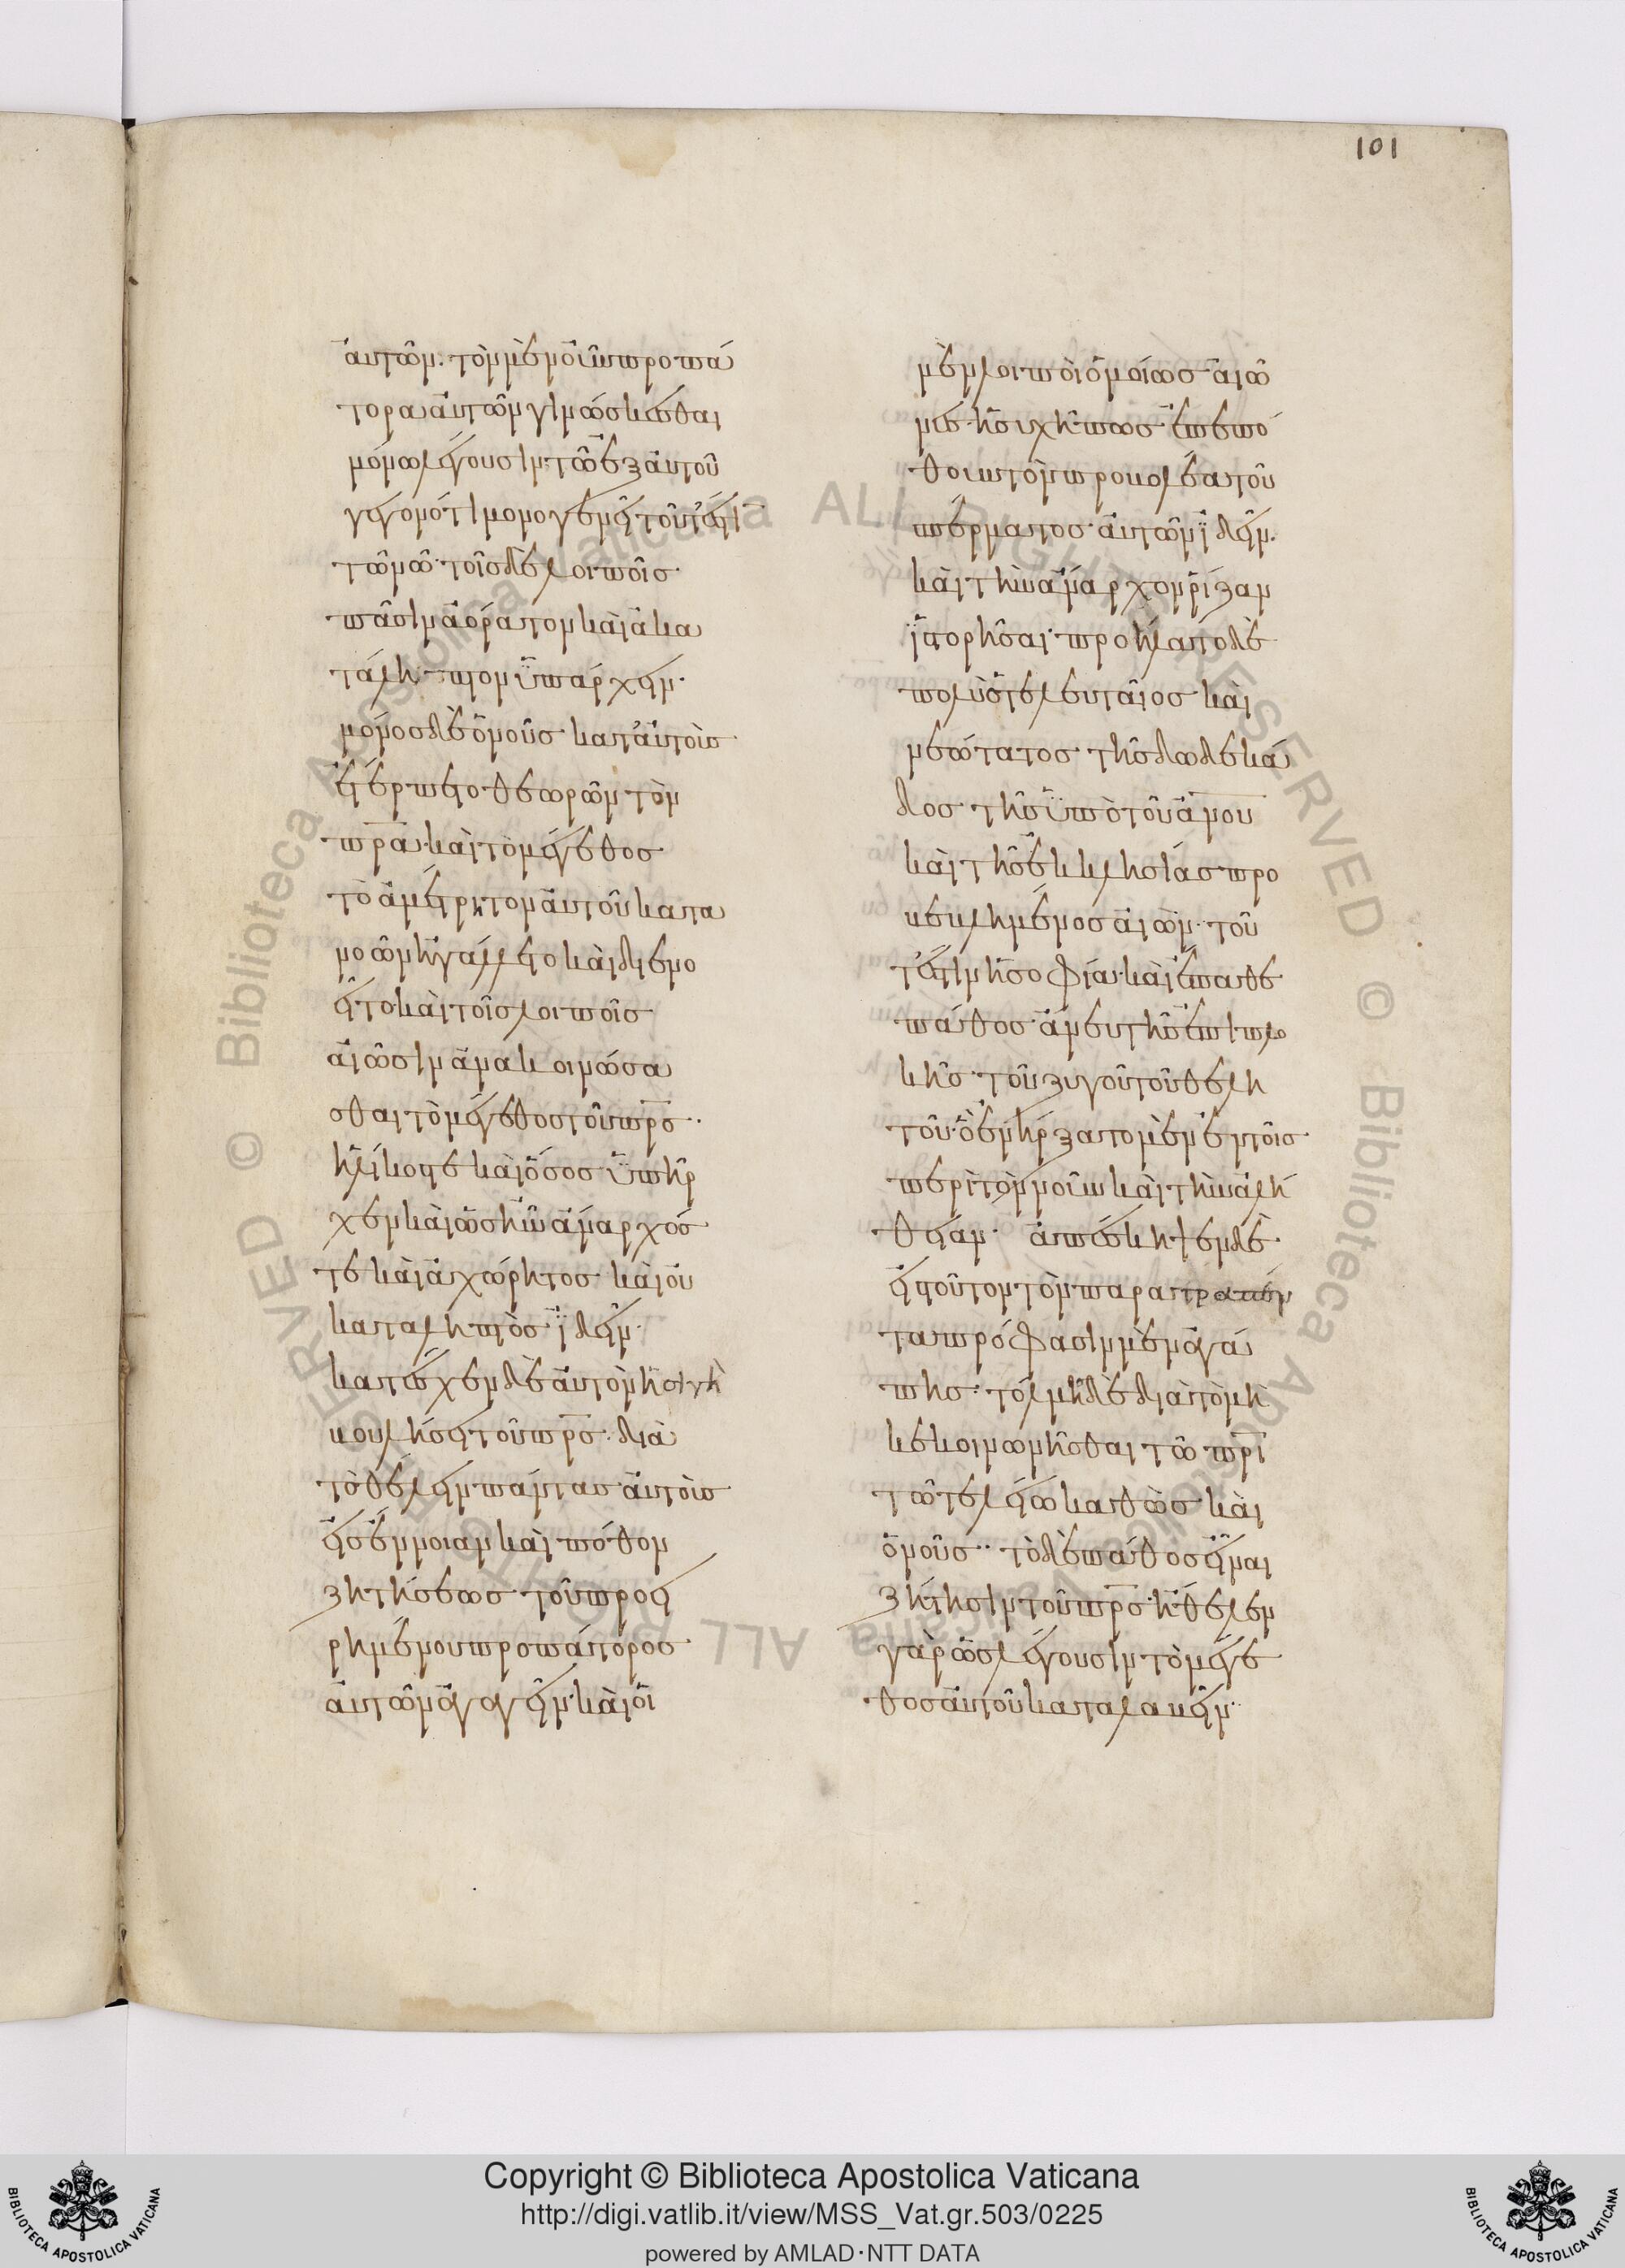 101
αὐτῶν. τὸν μὲν οὖν προπά
τορα αὐτῶν γινώσκεσθαι
μόνω λέγουσιν τῶ ἐξ αὐτοῦ
γεγονότι μονογενεῖ τουτέστι
τῶ νῶ. τοῖς δὲ λοιποῖς
πᾶσιν ἀόρατον καὶ ἀκα
τάληπτον ὑπάρχειν.
μόνος δὲ ὁ νοῦς κατ᾽ αὐτοὺς
ἐτέρπετο θεωρῶν τὸν
πρ̅α̅. καὶ τὸ μέγεθος
τὸ ἀμέτρητον αὐτοῦ κατα
νοῶν ἠγάλλετο καὶ διενο
εῖτο καὶ τοῖς λοιποῖς
αἰῶσιν ἀνακοινώσα
σθαι τὸ μέγεθος τοῦ πρ̅ς̅.
ἡλίκος τε καὶ ὅσος ὑπῆρ
χεν καὶ ὡς ἦν ἄναρχός
τε καὶ ἀχώρητος καὶ οὐ
καταληπτὸς ἰδεῖν.
κατέσχεν δὲ αὐτὸν ἡ σιγὴ
βουλήσει τοῦ πρ̅ς̅. διὰ
τὸ θέλειν πάντας αὐτοὺς
εἰς ἔννοιαν καὶ πόθον
ζητήσεως τοῦ προει
ρημένου προπάτορος
αὐτῶν ἀγαγεῖν. καὶ οἱ
μὲν λοιποὶ ὁμοίως αἰῶ
νες ἡσυχῆ πως ἐπεπό
θουν τὸν προβολέα τοῦ
σπέρματος αὐτῶν ἰδεῖν.
καὶ τὴν ἄναρχον ῥίζαν
ἱστορῆσαι. προήλατο δὲ
πολὺ ὁ τελευταῖος καὶ
νεώτατος τῆς δωδεκά
δος τῆς ὑπὸ τοῦ α̅ν̅ο̅υ̅
καὶ τῆς ἐκκλησίας προ
βεβλημένος αἰὼν. του
τέστιν ἡ σοφία. καὶ ἔπαθε
πάθος ἄνευ τῆς ἐπιπλο
κῆς τοῦ ζυγοῦ τοῦ θελη
τοῦ. ὃ ἐνήρξατο μὲν ἐν τοῖς
περὶ τὸν νοῦν καὶ τὴν ἀλή
θειαν. ἀπέσκηψεν δὲ
εἰς τοῦτον τὸν παρατραπέν
τα προφάσιν μὲν ἀγά
πης. τόλμη δὲ διὰ τὸ μὴ
κεκοινωνῆσθαι τῶ πρ̅ι̅
τῶ τελείω καθὼς καὶ
ὁ νοῦς. τὸ δὲ πάθος εἶναι
ζήτησιν τοῦ πρ̅ς̅. ἤθελεν
γὰρ ὡς λέγουσιν τὸ μέγε
θος αὐτοῦ καταλαβεῖν.
Copyright © Biblioteca Apostolica Vaticana
http://digi.vatlib.it/view/MSS_Vat.gr.503/0225
powered by AMLAD·NTT DATA